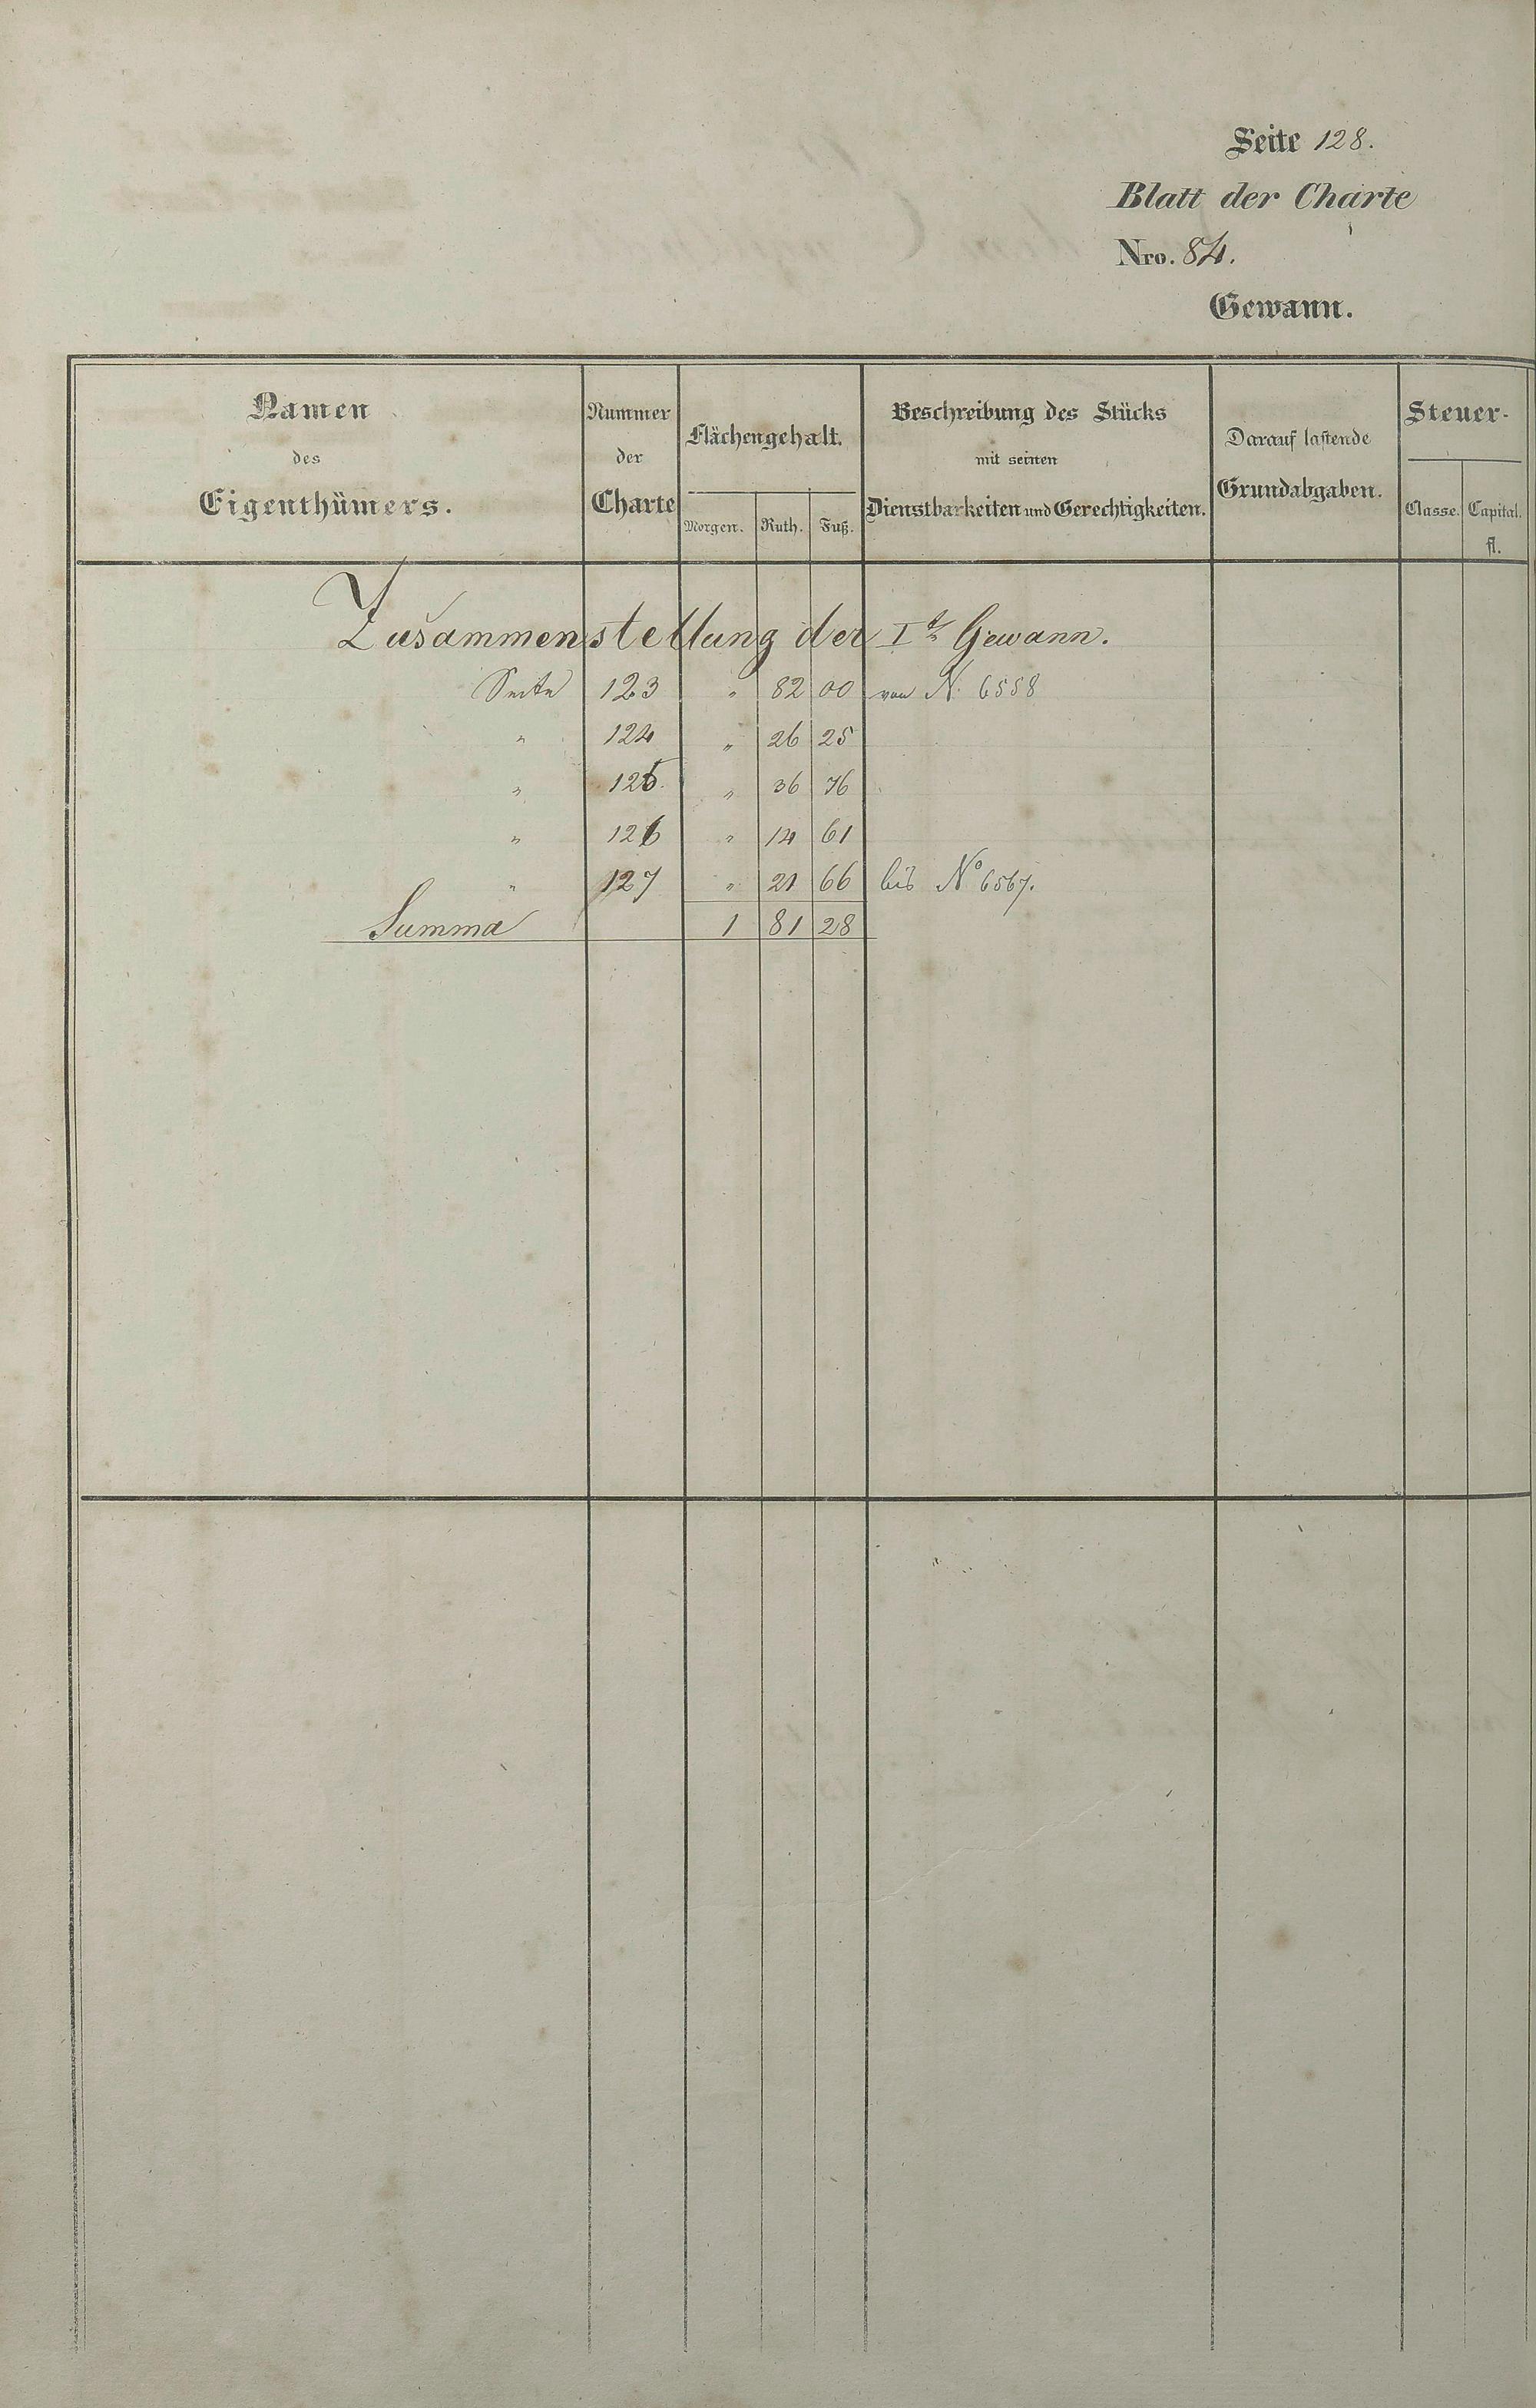 Seite 128.
Blatt der Charte
Nro. 84.
Gewann.
Namen des Eigenthümers.
Nummer der Charte
Flächengehalt.
Morgen. Ruth. Fuß.
Beschreibung des Stücks mit seinen Dienstbarkeiten und Gerechtigkeiten.
Darauf lastende Grundabgaben.
Steuer-
Classe. Capital.
fl.
Zusammenstellung der Iᵗ Gewann.
Seite 123 " 82 00 von N. 6558
" 124 " 26 25
" 125. " 36 76
" 126 " 14 61
" 127 " 21 66 bis Nº 6567.
Summa 1 81 28